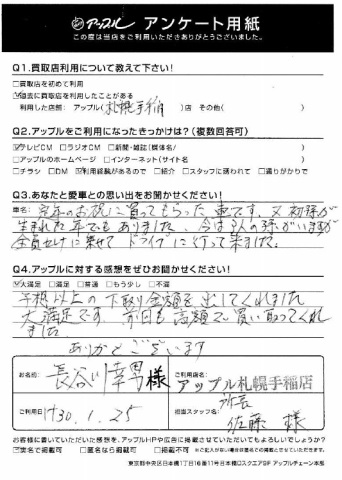 アップル アンケート用紙
この度は当店をご利用いただきありがとうございました。
Q1.買取店利用について教えて下さい!
□買取店を初めて利用
☑過去に買取店を利用したことがある
利用した店舗: アップル(札幌手稲)店 その他( )
Q2.アップルをご利用になったきっかけは?(複数回答可)
☑テレビCM □ラジオCM □新聞・雑誌(媒体名/ )
□アップルのホームページ □インターネット(サイト名 )
□チラシ □DM ☑利用経験があるので □紹介 □スタッフに誘われて □通りがかりで
Q3.あなたと愛車との思い出をお聞かせください!
車名: 定年のお祝に買ってもらった車です。又初孫が
生まれた年でもありました。今は3人の孫がいますが
全員せけに乗せて ドライブに行って来ました。
Q4.アップルに対する感想をぜひお聞かせください!
☑大満足 □満足 □普通 □もう少し □不満
予想以上の下取り金額を出してくれました
大満足です 前回も高額で買い取ってくれ
ました
ありがとうございます
お名前: 長谷川幸男様
ご利用店名: アップル札幌手稲店
ご利用日 H30.1.25
担当スタッフ名: 所長 佐藤 様
お客様に書いていただいた感想を、アップルHPや広告に掲載させていただいてもよろしいでしょうか?
☑実名で掲載可 □匿名なら掲載可 □掲載不可
東京都中央区日本橋1丁目16番11号日本橋Dスクエア3F アップルチェーン本部